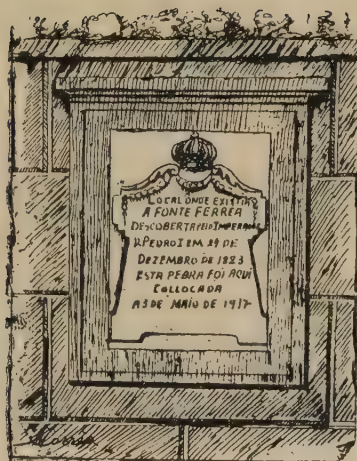 LOCAL ONDE EXISTIU
A FONTE FERREA
DESCOBERTA PELO IMPERADOR
D. PEDRO I EM 29 DE
DEZEMBRO DE 1823
ESTA PEDRA FOI AQUI
COLLOCADA
A 3 DE MAIO DE 1917